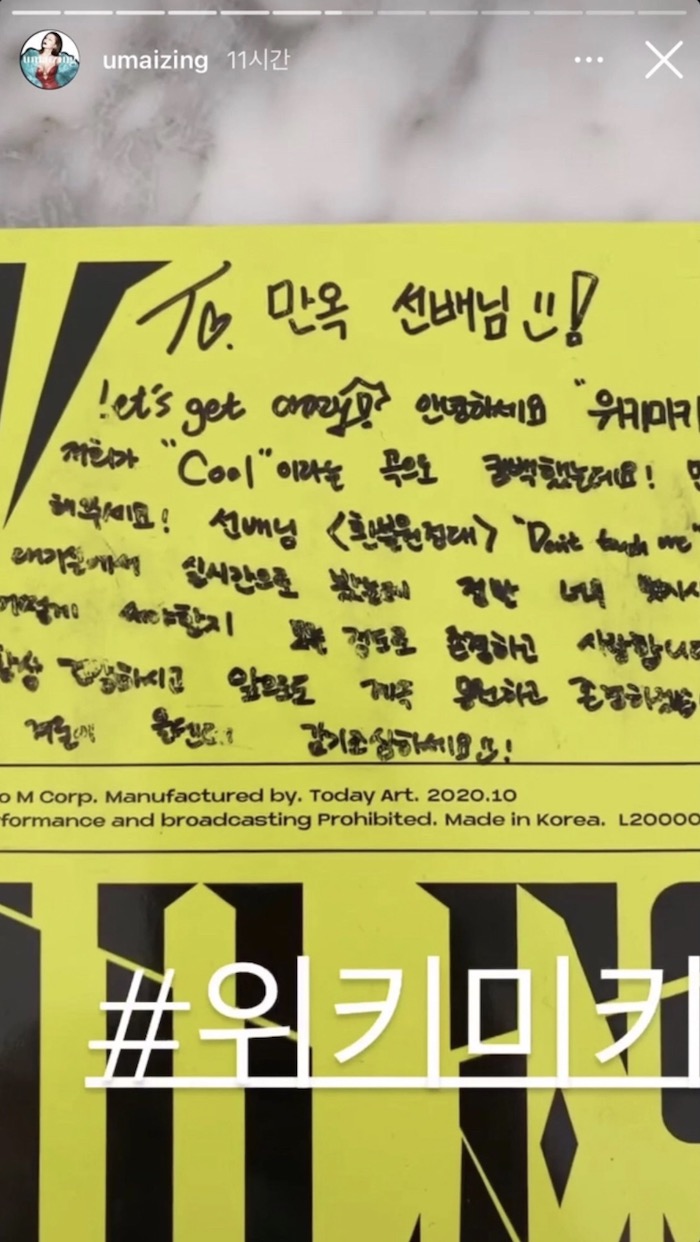 umaizing 11시간
To. 만옥 선배님!
Let's get crazy 안녕하세요 "위키미키
저희가 "Cool"이라는 곡으로 컴백했는데요!
해주세요! 선배님 <환불원정대> "Don't touch me"
대기실에서 실시간으로 봤는데 정말 너무
어떻게 써야할지 정도로 존경하고 사랑합니다
항상 건강하시고 앞으로도 계속 응원하고
겨울에 감기조심하세요!
o M Corp. Manufactured by. Today Art. 2020.10
formance and broadcasting Prohibited. Made in Korea. L20000
#위키미키